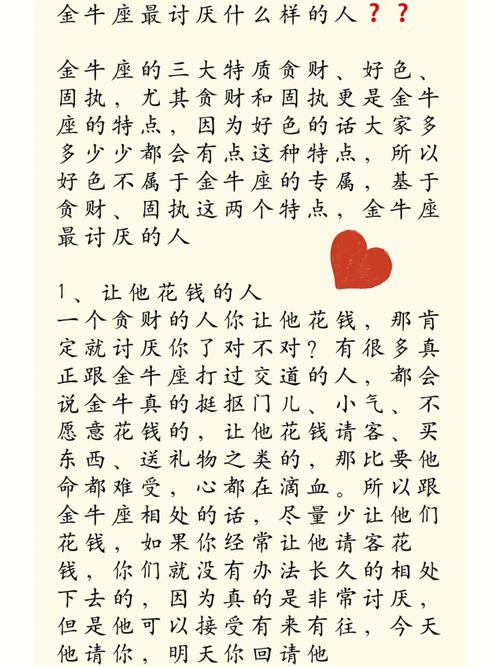 金牛座最讨厌什么样的人❓❓
金牛座的三大特质贪财、好色、
固执，尤其贪财和固执更是金牛
座的特点，因为好色的话大家多
多少少都会有点这种特点，所以
好色不属于金牛座的专属，基于
贪财、固执这两个特点，金牛座
最讨厌的人
1、让他花钱的人
一个贪财的人你让他花钱，那肯
定就讨厌你了对不对？有很多真
正跟金牛座打过交道的人，都会
说金牛真的挺抠门儿、小气、不
愿意花钱的，让他花钱请客、买
东西、送礼物之类的，那比要他
命都难受，心都在滴血。所以跟
金牛座相处的话，尽量少让他们
花钱，如果你经常让他请客花
钱，你们就没有办法长久的相处
下去的，因为真的是非常讨厌，
但是他可以接受有来有往，今天
他请你，明天你回请他